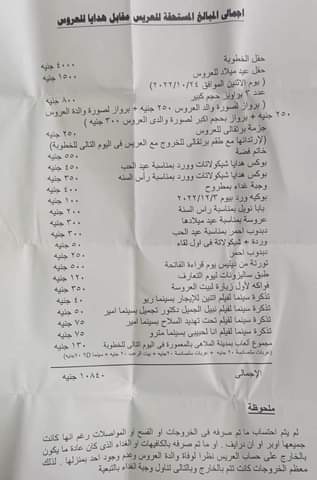 اجمالى المبالغ المستحقة للعريس مقابل هدايا للعروس
حفل الخطوبة ٤٠٠٠ جنيه
حفل عيد ميلاد للعروس ١٥٠٠ جنيه
( يوم الاثنين الموافق ٢٠٢٢/١٠/٢٤ )
عدد ٣ براويز حجم كبير ٨٠٠ جنيه
( برواز لصورة والد العروس ٢٥٠ جنيه + برواز لصورة والدة العروس
٢٥٠ جنيه + برواز بحجم اكبر لصورة والدى العروس ٣٠٠ جنيه )
جزمة برتقالى للعروس ٢٥٠ جنيه
(لإرتدائها مع طقم برتقالى للخروج مع العريس فى اليوم التالى للخطوبة)
خاتم فضة ٥٥٠ جنيه
بوكس هدايا شيكولاتات وورد بمناسبة عيد الحب ٤٥٠ جنيه
بوكس هدايا شيكولاتات وورد بمناسبة رأس السنه ٣٥٠ جنيه
وجبة غداء بمطروح ٤٠٠ جنيه
بوكيه ورد بيوم ٢٠٢٢/١٢/٣ ١٠٠ جنيه
بابا نويل بمناسبة راس السنة ٢٠٠ جنيه
عروسة بمناسبة عيد ميلادها ٣٠٠ جنيه
دبدوب احمر بمناسبة عيد الحب ٣٠٠ جنيه
وردة + شيكولاتة فى اول لقاء ٥٠ جنيه
دبدوب احمر ٢٥٠ جنيه
تورتة من تيتيس يوم قراءة الفاتحة ٥٠٠ جنيه
طبق ساليزونات ليوم التعارف ١٢٠ جنيه
فواكه لأول زيارة لبيت العروسة ٣٥٠ جنيه
تذكرة سينما لفيلم اتنين للايجار بسينما ريو ٤٠ جنيه
تذكرة سينما لفيلم نبيل الجميل دكتور تجميل بسينما امير ٥٠ جنيه
تذكرة سينما لفيلم تحت تهديد السلاح بسينما امير ٧٥ جنيه
تذكرة سينما لفيلم انا لحبيبى بسينما مترو ٧٥ جنيه
مجموع ألعاب بمدينة الملاهى بالمعمورة فى اليوم التالى للخطوبة ١٣٠ جنيه
الإجمالى ١٠٨٤٠ جنيه
ملحوظة
لم يتم احتساب ما تم صرفه فى الخروجات او الفسح او المواصلات رغم انها كانت
جميعها اوبر او ان درايف . او ما تم صرفه بالكافيهات او الغداء الذى كان عادة ما يكون
بالخارج على حساب العريس نظرا لوفاة والدة العروس وعدم وجود احد بمنزلها . لذلك
معظم الخروجات كانت تتم بالخارج وبالتالى تناول وجبة الغداء بالتبعية